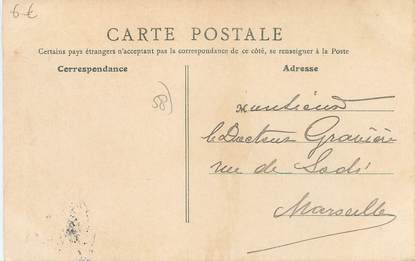 6 €
CARTE POSTALE
Certains pays étrangers n'acceptant pas la correspondance de ce côté, se renseigner à la Poste
Correspondance
Adresse
58
Monsieur
le Docteur
rue de
Marseille